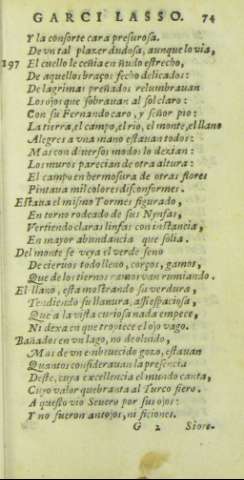 GARCI LASSO. 74
Y la consorte cara presurosa.
De vn tal plazer dudosa, aunque lo via,
197 El cuello le ceñia en ñudo estrecho,
De aquellos braços fecho delicados:
De lagrimas preñados relumbrauan
Los ojos que sobrauan al sol claro:
Con su Fernando caro, y señor pio:
La tierra, el campo, el rio, el monte, el llano
Alegres a vna mano estauan todos:
Mas con diuersos modos lo dezian:
Los muros parecian de otra altura:
El campo en hermosura de otras flores
Pintaua mil colores disconformes.
Estaua el mismo Tormes figurado,
En torno rodeado de sus Nynfas,
Vertiendo claras linfas con instancia,
En mayor abundancia que solia.
Del monte se veya el verde seno
De cieruos todo lleno, corços, gamos,
Que de los tiernos ramos van rumiando.
El llano, esta mostrando su verdura,
Tendiendo su llanura, assi espaciosa,
Que a la vista curiosa nada empece,
Ni dexa en que tropiece el ojo vago.
Bañados en vn lago, no de oluido,
Mas de vn embeuecido gozo, estauan
Quantos considerauan la presencia
Deste, cuya excellencia el mundo canta,
Cuyo valor quebranta al Turco fiero.
Aquesto vio Seuero por sus ojos:
Y no fueron antojos, ni ficiones.
G 2 Siore-